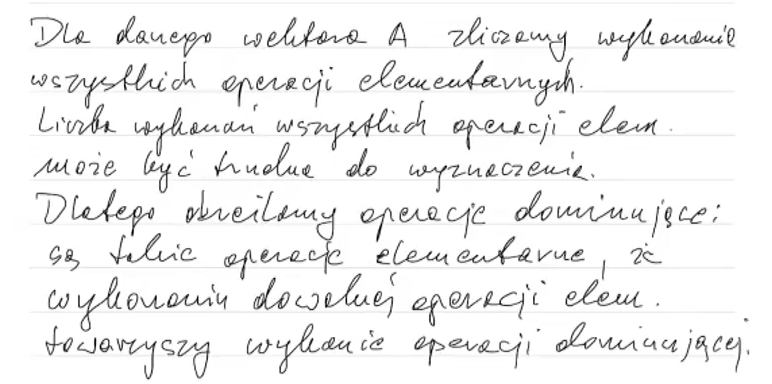 Dla danego wektora A zliczamy wykonanie
wszystkich operacji elementarnych.
Liczba wykonań wszystkich operacji elem.
może być trudna do wyznaczenia.
Dlatego określamy operacje dominujące:
są takie operacje elementarne, że
wykonaniu dowolnej operacji elem.
towarzyszy wykonanie operacji dominującej.